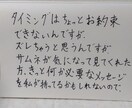 タイミングはちょっとお約束
できないんですが、
ズレちゃうと思うんですが
サムネが気になって見てくれた
方、きっと何が必要なメッセージ
を私が持ってるかもしれないので、